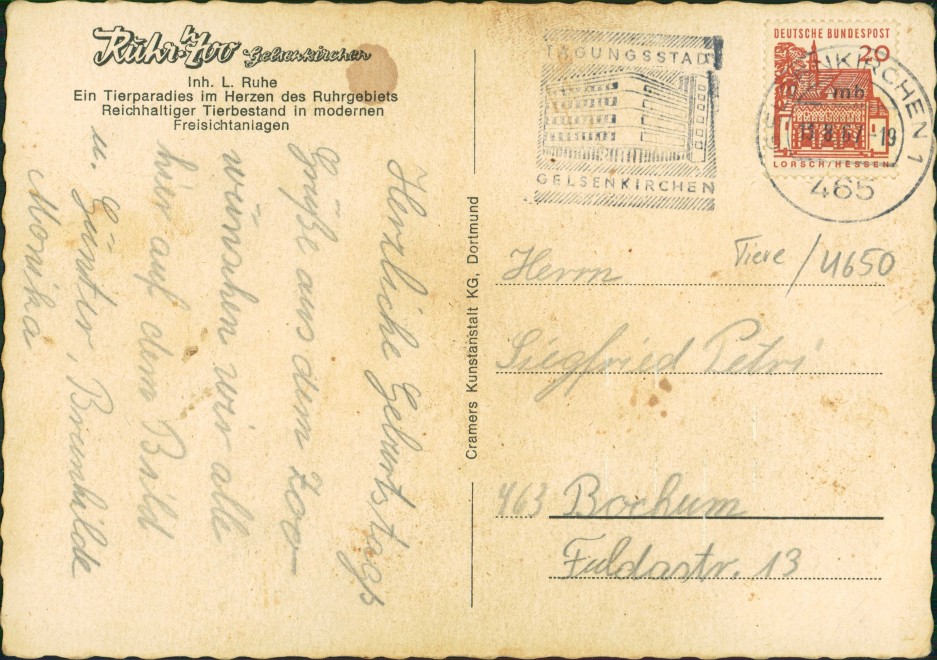 Ruhr-Zoo Gelsenkirchen
Inh. L. Ruhe
Ein Tierparadies im Herzen des Ruhrgebiets
Reichhaltiger Tierbestand in modernen
Freisichtanlagen
Herzliche Geburtstags
Grüße aus dem Zoo
wünschen wir alle
hier auf dem Bild
u. Günter, Brunhilde
Monika
Cramers Kunstanstalt KG, Dortmund
TAGUNGSSTADT
GELSENKIRCHEN
DEUTSCHE BUNDESPOST
20
LORSCH/HESSEN
GELSENKIRCHEN 1
mb
13.8.67-19
465
Tiere / U650
Herrn
Siegfried Petri
463 Bochum
Fuldastr. 13